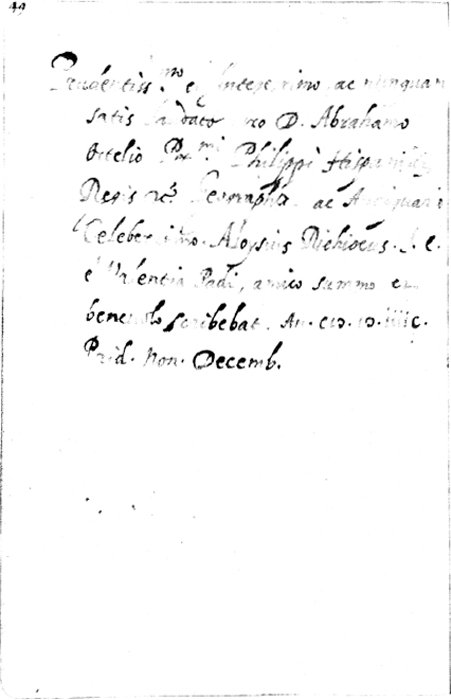 49
Prudentiss.mo et Integerrimo, ac nunquam
satis laudato viro D. Abrahamo
Ortelio Pot.mi Philippi Hispaniar
Regis &c. Geographo ac Antiquario
Celeberrimo. Aloysius Richiocus. J. C.
e Valentia Padi, amico summo et
benevolo scribebat. An. CIƆ. IƆ. IIIIC.
Prid. Non. Decemb.